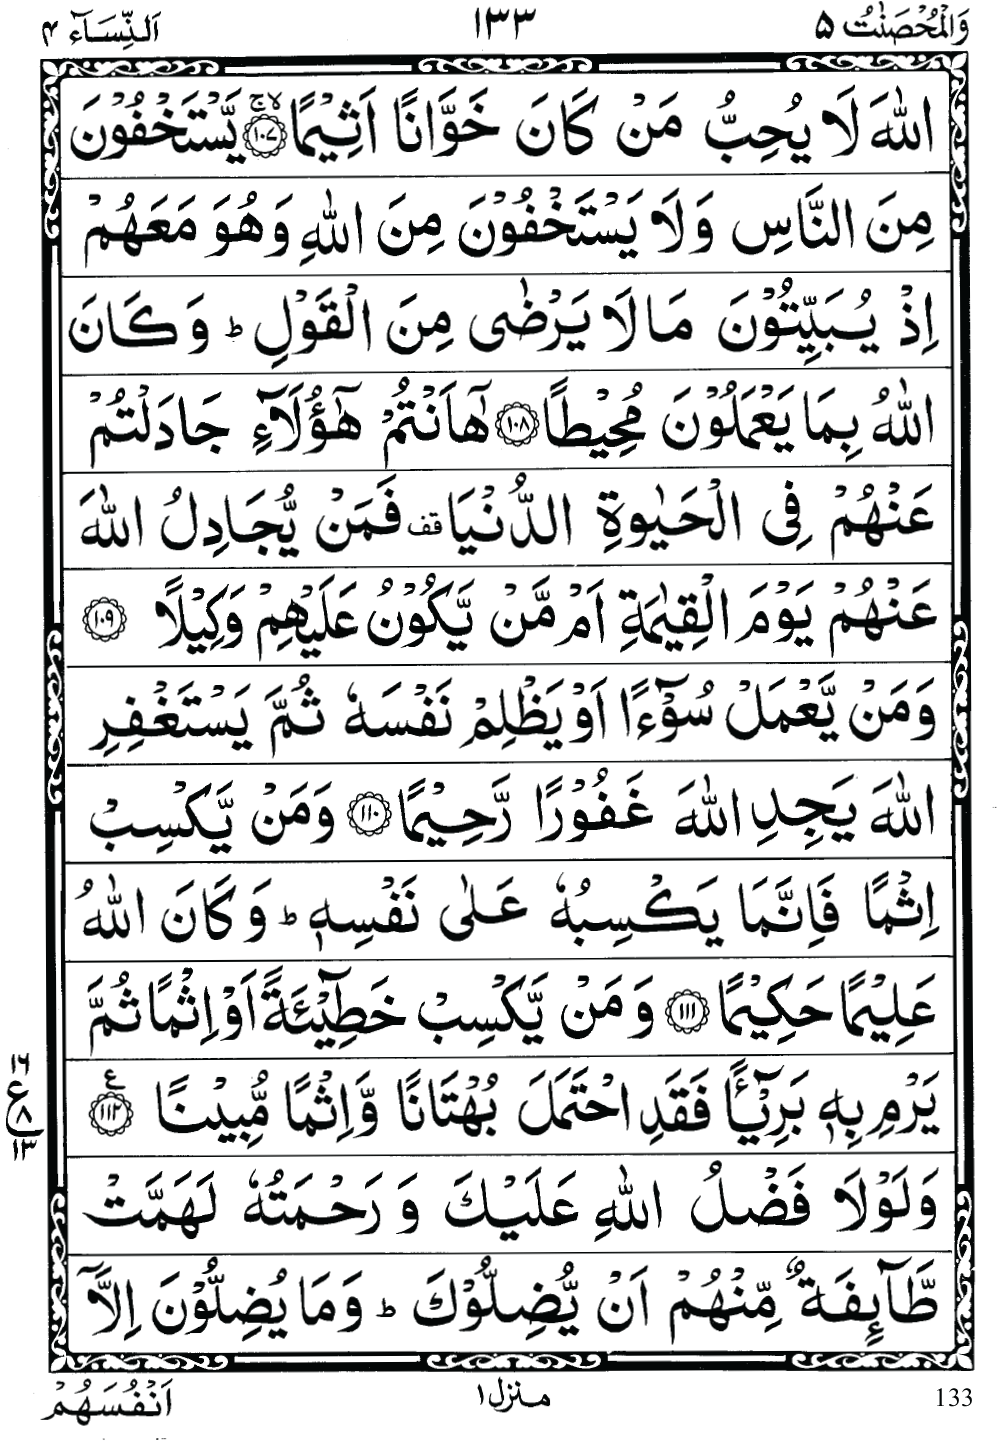 وَالْمُحْصَنٰتُ ۵ ۱۳۳ اَلنِّسَآء ۴
اللّٰهَ لَا يُحِبُّ مَنْ كَانَ خَوَّانًا اَثِيْمًا ﴿۱۰۷﴾ لاج يَّسْتَخْفُوْنَ
مِنَ النَّاسِ وَلَا يَسْتَخْفُوْنَ مِنَ اللّٰهِ وَهُوَ مَعَهُمْ
اِذْ يُبَيِّتُوْنَ مَا لَا يَرْضٰى مِنَ الْقَوْلِ ؕ وَكَانَ
اللّٰهُ بِمَا يَعْمَلُوْنَ مُحِيْطًا ﴿۱۰۸﴾ هٰۤاَنْتُمْ هٰۤؤُلَآءِ جَادَلْتُمْ
عَنْهُمْ فِى الْحَيٰوةِ الدُّنْيَا قف فَمَنْ يُّجَادِلُ اللّٰهَ
عَنْهُمْ يَوْمَ الْقِيٰمَةِ اَمْ مَّنْ يَّكُوْنُ عَلَيْهِمْ وَكِيْلًا ﴿۱۰۹﴾
وَمَنْ يَّعْمَلْ سُوْٓءًا اَوْ يَظْلِمْ نَفْسَهٗ ثُمَّ يَسْتَغْفِرِ
اللّٰهَ يَجِدِ اللّٰهَ غَفُوْرًا رَّحِيْمًا ﴿۱۱۰﴾ وَمَنْ يَّكْسِبْ
اِثْمًا فَاِنَّمَا يَكْسِبُهٗ عَلٰى نَفْسِهٖ ؕ وَكَانَ اللّٰهُ
عَلِيْمًا حَكِيْمًا ﴿۱۱۱﴾ وَمَنْ يَّكْسِبْ خَطِيْٓئَةً اَوْ اِثْمًا ثُمَّ
يَرْمِ بِهٖ بَرِيْٓـًٔا فَقَدِ احْتَمَلَ بُهْتَانًا وَّاِثْمًا مُّبِيْنًا ﴿۱۱۲﴾ ع
۱۶
ع ۸
۱۳
وَلَوْلَا فَضْلُ اللّٰهِ عَلَيْكَ وَرَحْمَتُهٗ لَهَمَّتْ
طَّآئِفَةٌ مِّنْهُمْ اَنْ يُّضِلُّوْكَ ؕ وَمَا يُضِلُّوْنَ اِلَّاۤ
133 منزل ۱ اَنْفُسَهُمْ